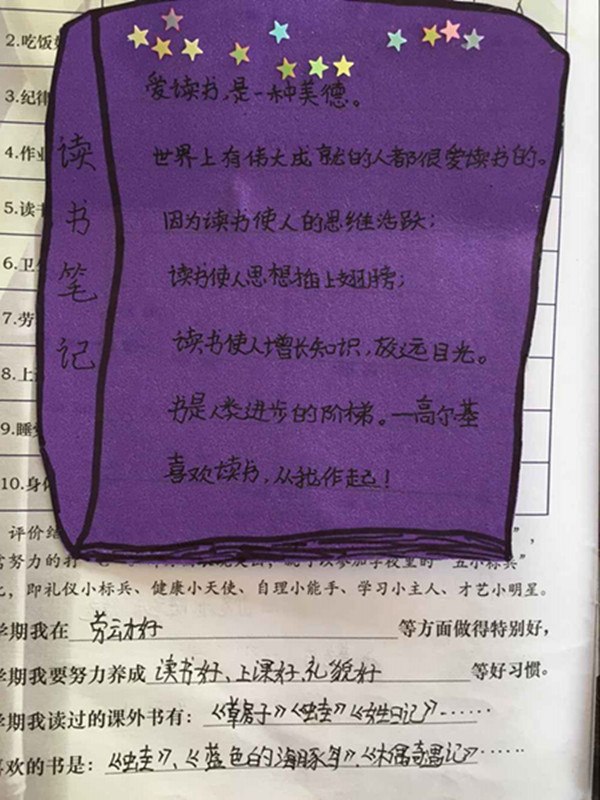 2.吃饭
3.纪律
4.作业
5.读书
6.卫
7.劳
8.上
9.睡
10.身体
读书笔记
爱读书,是一种美德。
世界上有伟大成就的人都很爱读书的。
因为读书使人的思维活跃;
读书使人思想插上翅膀;
读书使人增长知识,放远目光。
书是人类进步的阶梯。—高尔基
喜欢读书,从我作起!
评价结
努力的打
,即礼仪小标兵、健康小天使、自理小能手、学习小主人、才艺小明星。
学期我在 劳动好 等方面做得特别好,
学期我要努力养成 读书好、上课好、礼貌好 等好习惯。
学期我读过的课外书有:《草房子》《蛙》《女生日记》……
喜欢的书是:《蛙》、《蓝色的海豚岛》、《木偶奇遇记》……